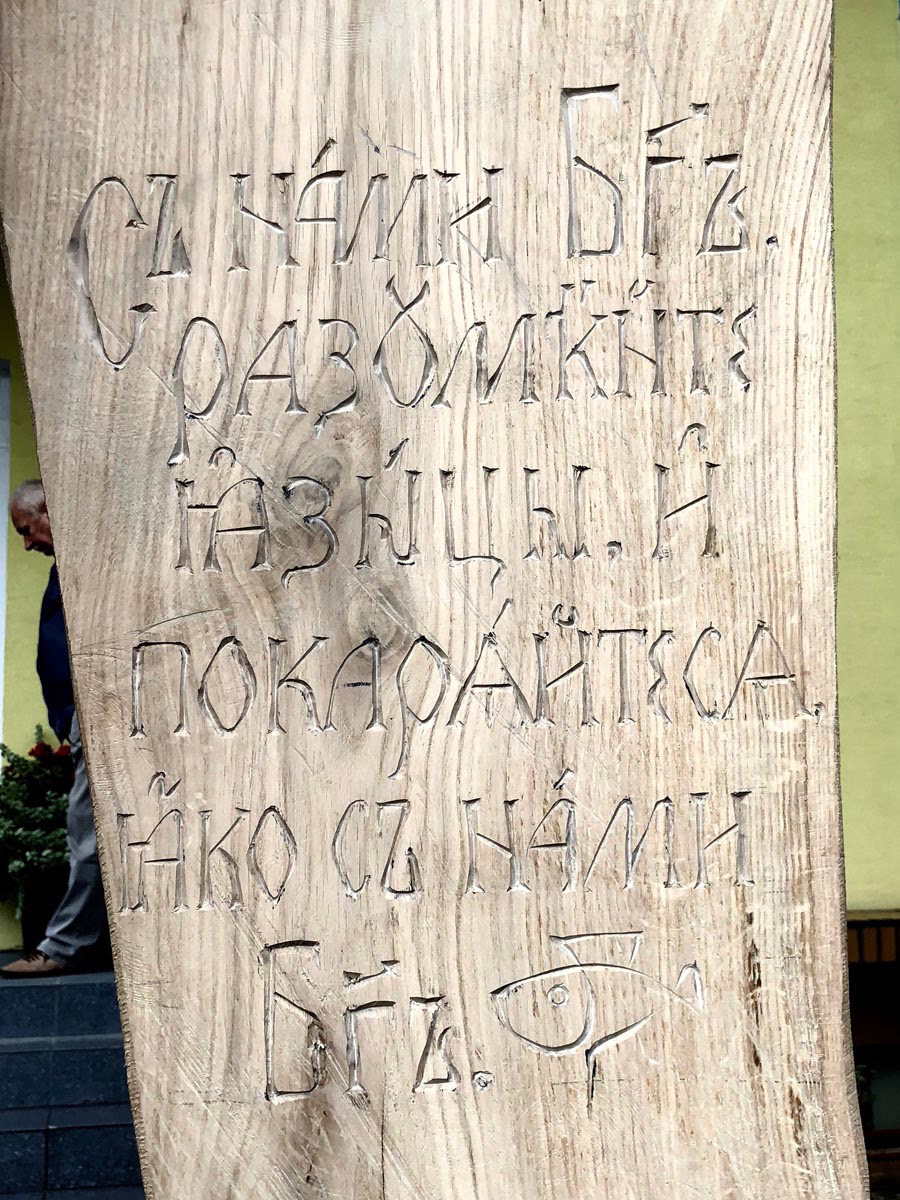 Съ на́ми Бг҃ъ.
разꙋмк̈йте
ꙗ҆зы́цы, и҆
покара́йтеса.
ꙗ҆́ко съ на́ми
Бг҃ъ.